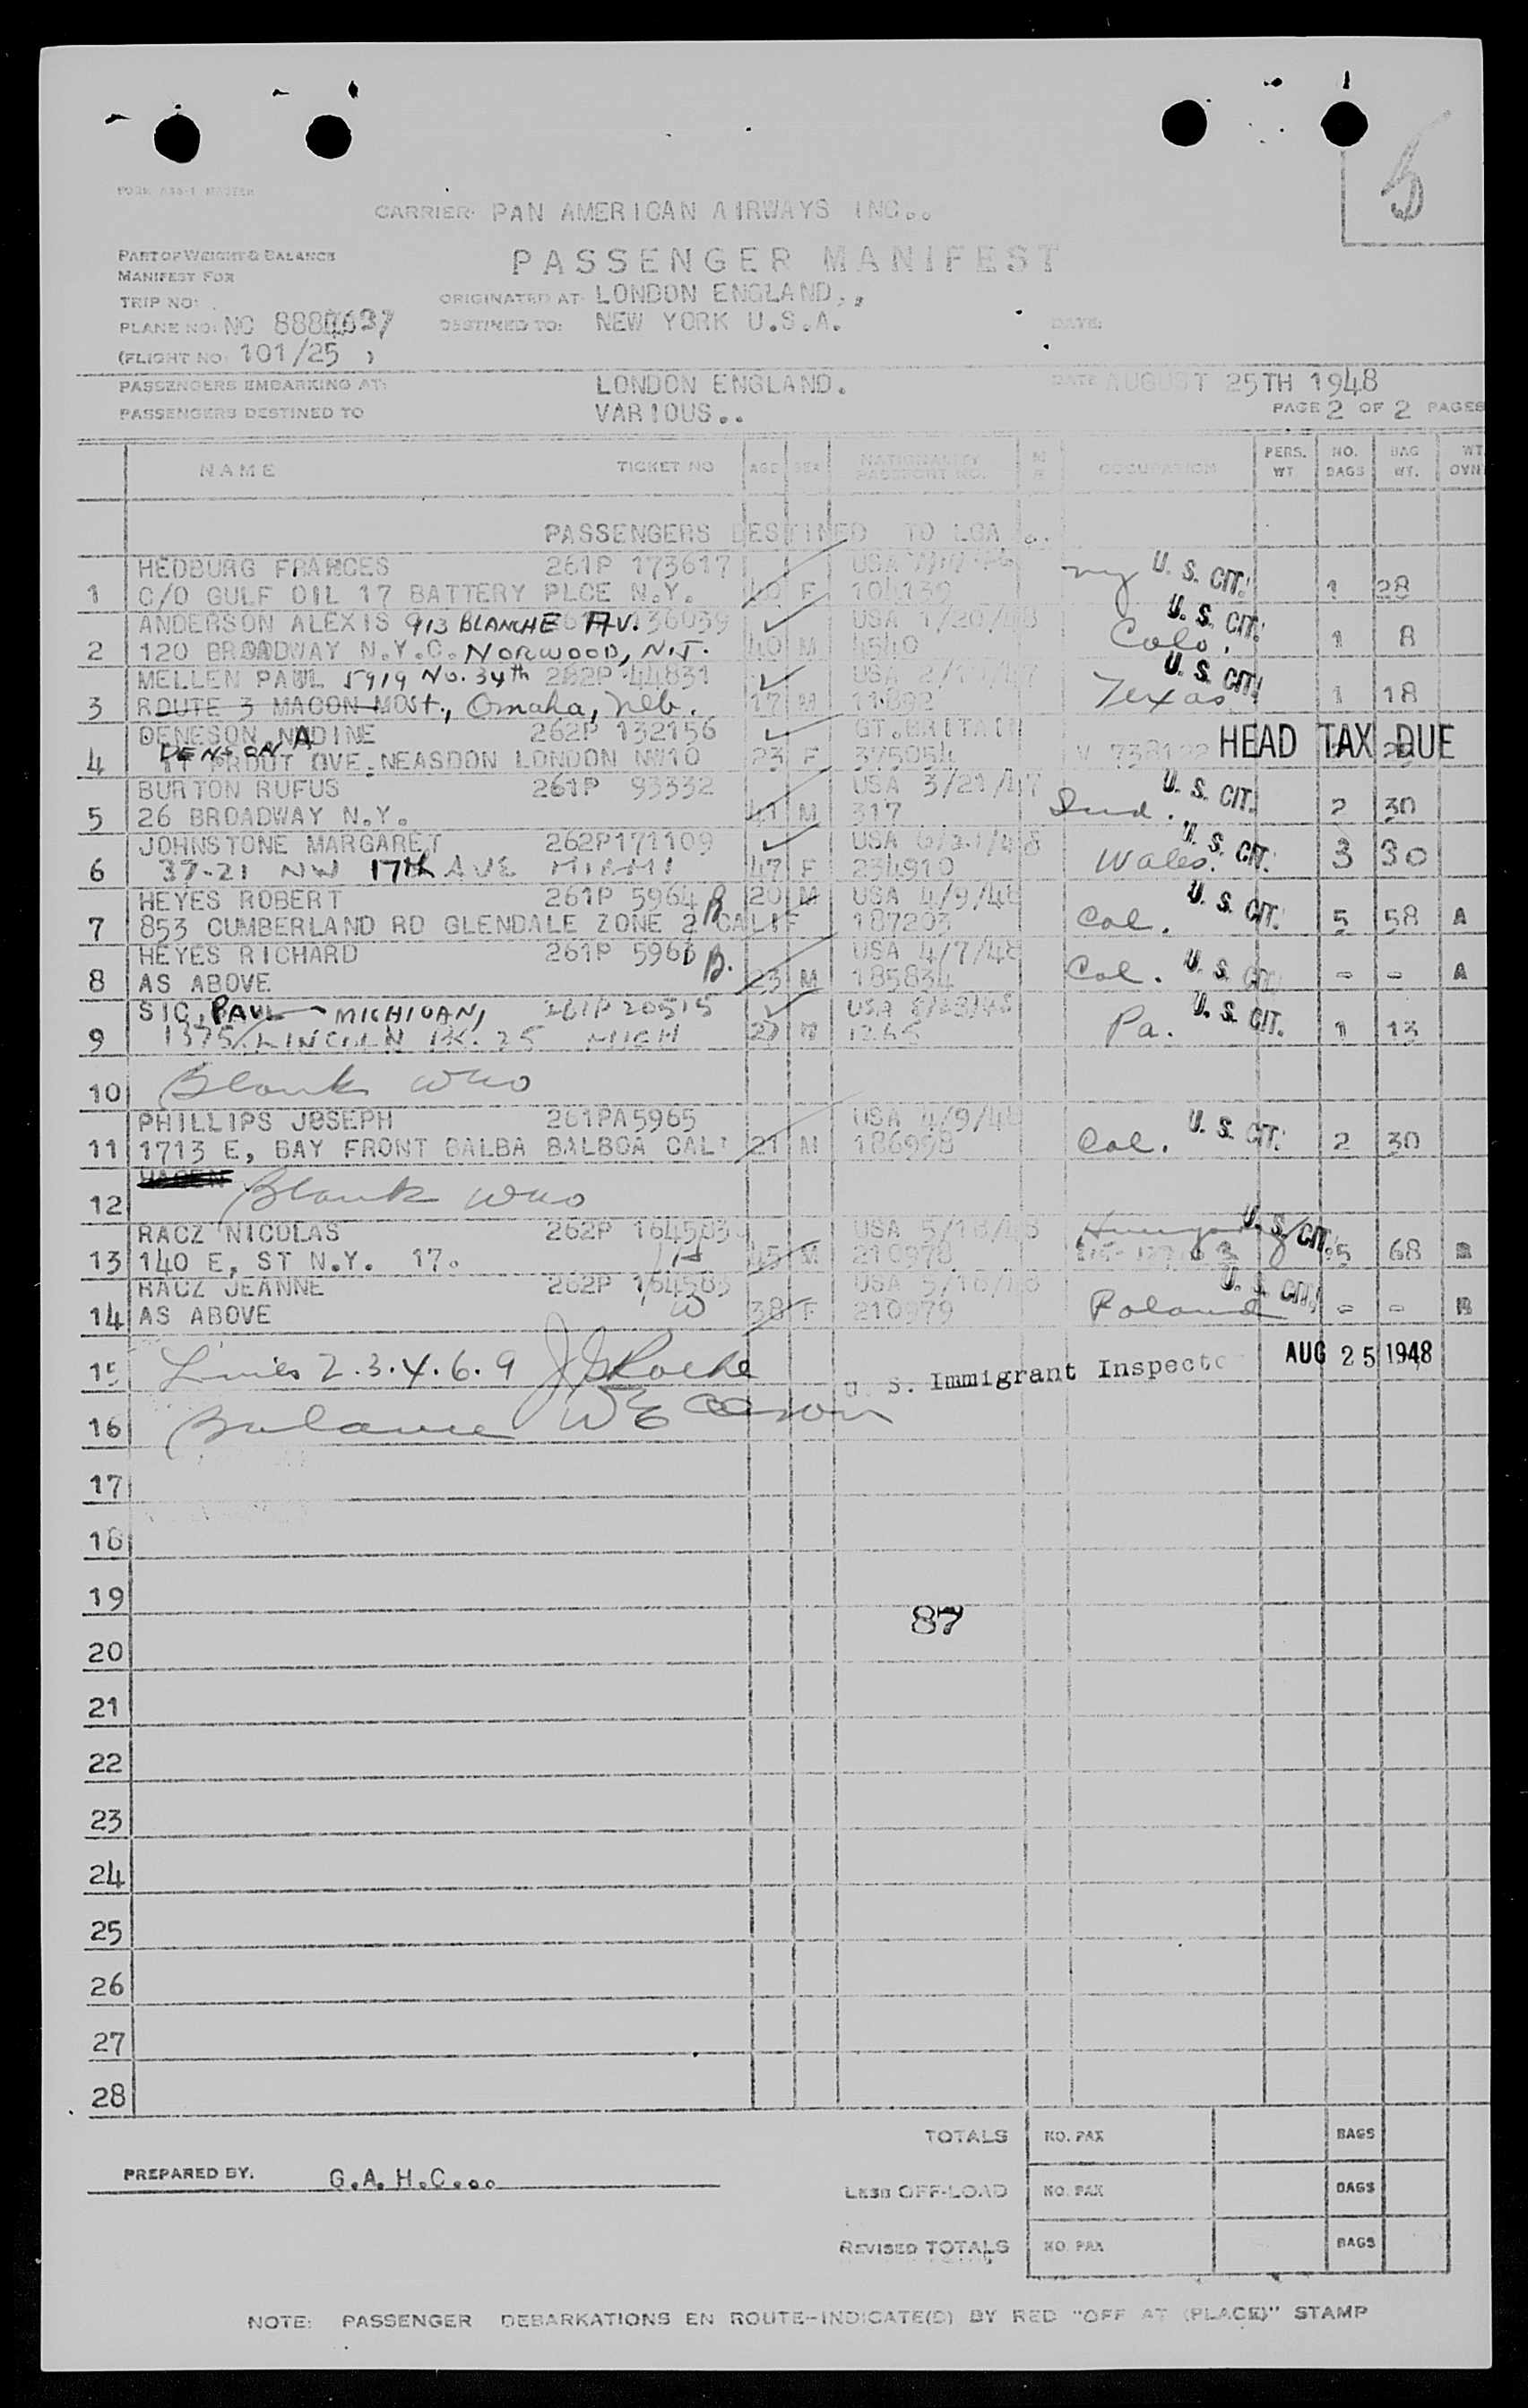 5
FORM 886-1 MASTER
CARRIER: PAN AMERICAN AIRWAYS INC..
PART OF WEIGHT & BALANCE
PASSENGER MANIFEST
MANIFEST FOR
TRIP NO:
ORIGINATED AT: LONDON ENGLAND.,
PLANE NO: NC
DESTINED TO: NEW YORK U.S.A.
DATE:
(FLIGHT NO: 101/25 )
PASSENGERS EMBARKING AT: LONDON ENGLAND. DATE AUGUST 25TH 1948
PASSENGERS DESTINED TO VARIOUS.. PAGE 2 OF 2 PAGES
NAME TICKET NO AGE SEX NATIONALITY PASSPORT NO. OCCUPATION PERS. WT. NO. BAGS BAG WT. WT OVN
PASSENGERS DESTINED TO LGA
HEDBURG FRANCES 261P 173617 USA U. S. CIT.
1 C/O GULF OIL 17 BATTERY PLCE N.Y. F 104139 NY 1 28
ANDERSON ALEXIS 913 BLANCHE AV. 136039 USA 1/20/48 U. S. CIT.
2 120 BROADWAY N.Y.C. NORWOOD, N.J. 40 M 4540 Colo. 1 8
MELLEN PAUL 5919 No. 34th 262P 44831 USA U. S. CIT.
3 ROUTE 3 MACON MO St., Omaha, Neb. 17 M 11892 Texas 1 18
DENESON NADINE 262P 132156 GT.BRITAIN HEAD TAX DUE
4 DENSON A PROUT GVE. NEASDON LONDON NW10 23 F 375054 V
BURTON RUFUS 261P 93332 USA 3/21/47 U. S. CIT.
5 26 BROADWAY N.Y. 41 M 317 Ind. 2 30
JOHNSTONE MARGARET 262P171109 USA U. S. CIT.
6 37-21 NW 17th AVE MIAMI 47 F 234910 Wales. 3 30
HEYES ROBERT 261P 5964 B 20 M USA 4/9/48 U. S. CIT.
7 853 CUMBERLAND RD GLENDALE ZONE 2 CALIF 187203 Cal. 5 58 A
HEYES RICHARD 261P 5966 B. USA 4/7/48
8 AS ABOVE 23 M 185834 Cal. U. S. CIT. - - A
SIC, PAUL MICHIGAN, 261P 20515 USA U. S. CIT.
9 1375 LINCOLN PK. 25 MICH M 1265 Pa. 1 13
10 Blank
PHILLIPS JOSEPH 261PA5965 USA 4/9/48 U. S. CIT.
11 1713 E, BAY FRONT BALBA BALBOA CAL 21 M 186958 Cal. 2 30
HAGEN
12 Blank
RACZ NICOLAS 262P 164583 USA 5/18/48 U. S. CIT.
13 140 E, ST N.Y. 17. 45 M 210978 Hungary 5 68 B
RACZ JEANNE 262P 164583 USA 5/18/48 U. S. CIT.
14 AS ABOVE 38 F 210979 Poland - - B
15 Lines 2.3.4.6.9 U. S. Immigrant Inspector AUG 25 1948
16 Balance
17
18
19
87
20
21
22
23
24
25
26
27
28
TOTALS NO. PAX BAGS
PREPARED BY. G.A.H.C...
LESS OFF-LOAD NO. PAX BAGS
REVISED TOTALS NO. PAX BAGS
NOTE: PASSENGER DEBARKATIONS EN ROUTE-INDICATE(D) BY RED "OFF AT (PLACE)" STAMP